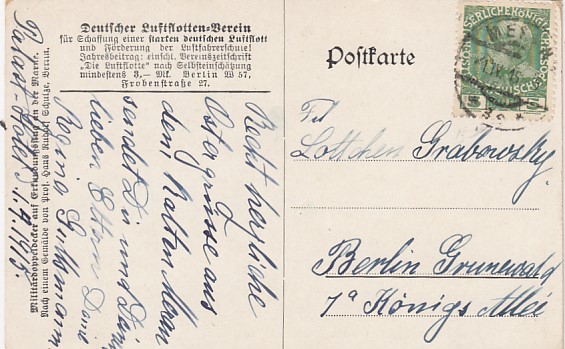 Deutscher Luftflotten-Verein
für Schaffung einer starken deutschen Luftflott
und Förderung der Luftfahrerschule!
Jahresbeitrag: einschl. Vereinszeitschrift
„Die Luftflotte“ nach Selbsteinschätzung
mindestens 3,— Mk. Berlin W 57,
Frobenstraße 27.
Postkarte
Militärdoppeldecker auf Erkundungsflug an der Marne.
Nach einem Gemälde von Prof. Hans Rudolf Schulze, Berlin.
Recht herzliche
Ostergrüße aus
dem kalten
sendet Dir und Deinen
lieben Eltern Deine
1.4.1915.
Lottchen Grabowsky
Berlin Grunewald
7a Königs Allee
WIEN
5
5